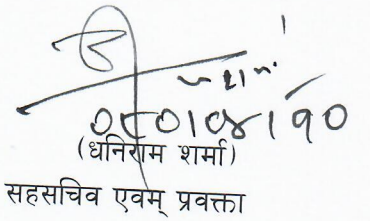 ०८०।०४।१०
(धनिराम शर्मा)
सहसचिव एवम् प्रवक्ता